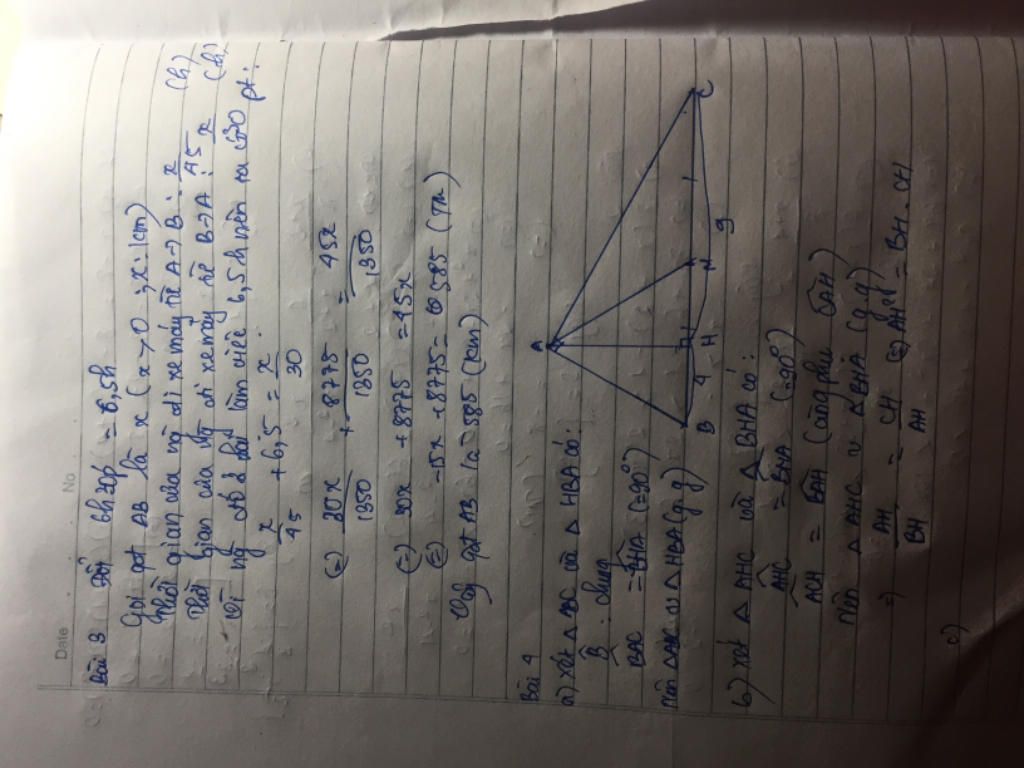 No
Date
Bài 3 Đổi 6h30p' = 6,5h
Gọi qđ AB là x (x > 0; x: km)
Thời gian của ng đi xe máy từ A → B : x/45 (h)
Thời gian của ng đi xe máy từ B → A : x (h)
Vì ng đó làm việc 6,5h nên ta có pt:
x/45 + 6,5 = x/30
(=) 30x/1350 + 8775/1350 = 45x/1350
(=) 30x + 8775 = 45x
(=) -15x + 8775 = 585 (TM)
Vậy qđ AB là 585 (km)
Bài 4
a) Xét Δ ABC và Δ HBA có:
B̂ chung
BAC = BHA (=90°)
Nên ΔABC ∽ Δ HBA (g.g)
A
B
4
H
N
C
9
b) Xét Δ AHC và Δ BHA có:
AHC = BHA (=90°)
ACH = BAH (cùng phụ CAH)
Nên Δ AHC ∽ Δ BHA (g.g)
=) AH/BH = CH/AH (=) AH.AH = BH.CH
c)